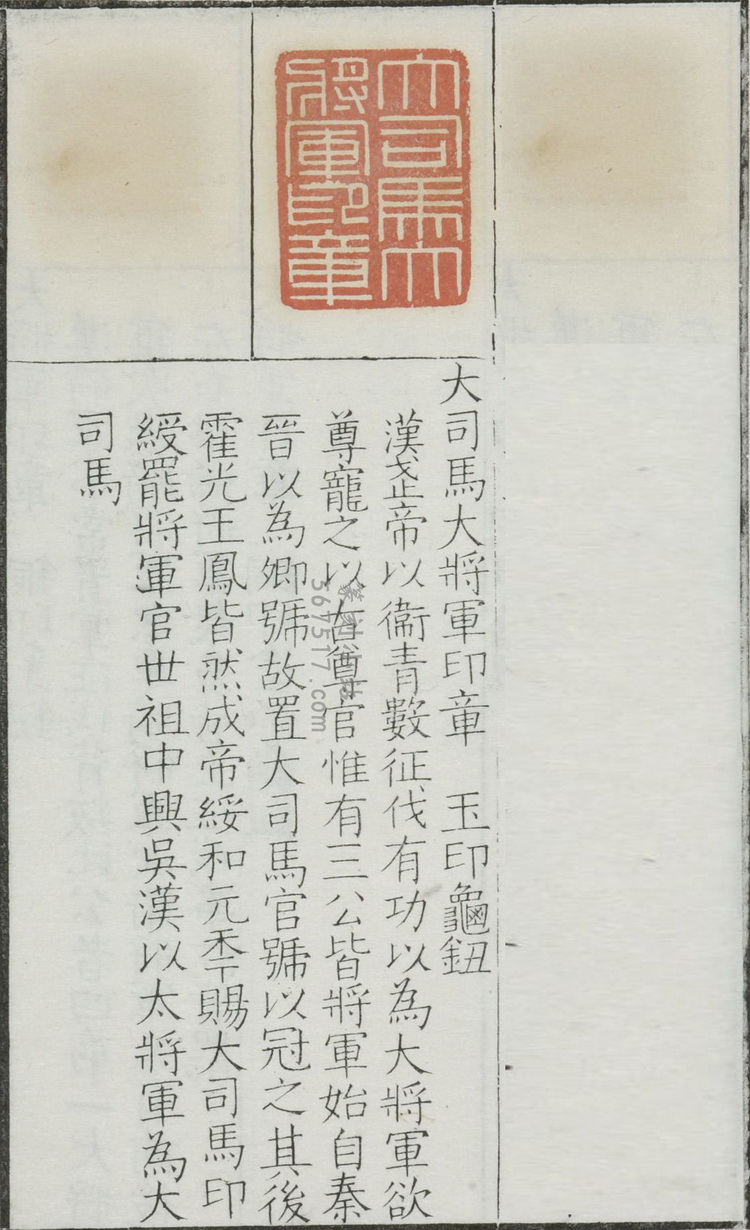 大司馬大
將軍印章
大司馬大將軍印章　玉印龜鈕
漢武帝以衞青數征伐有功以為大將軍欲
尊寵之以古尊官惟有三公皆將軍始自秦
晉以為卿號故置大司馬官號以冠之其後
霍光王鳳皆然成帝綏和元秊賜大司馬印
綬罷將軍官世祖中興吳漢以太將軍為大
司馬
567517.com